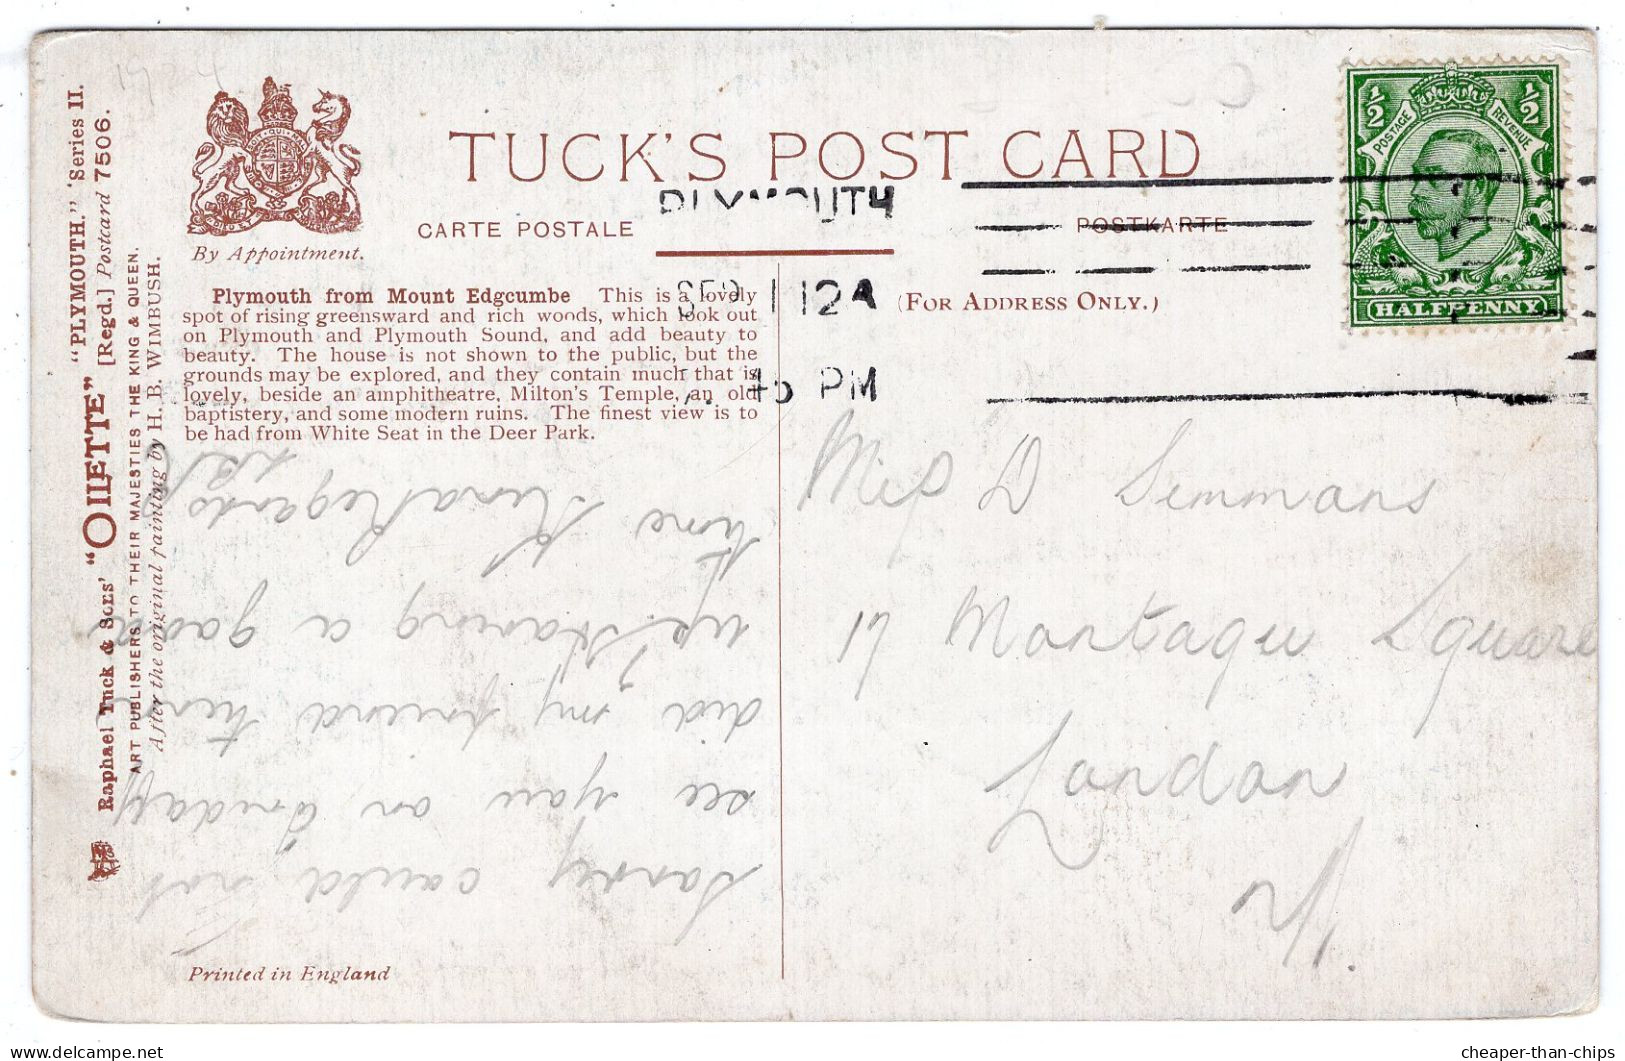 1924
"PLYMOUTH." Series II.
Raphael Tuck & Sons' "OILETTE" [Regd.] Postcard 7506.
ART PUBLISHERS TO THEIR MAJESTIES THE KING & QUEEN.
After the original painting by H. B. WIMBUSH.
By Appointment.
TUCK'S POST CARD
CARTE POSTALE
POSTKARTE
PLYMOUTH
SEP 1 12 A
45 PM
(FOR ADDRESS ONLY.)
POSTAGE REVENUE
½ ½
HALFPENNY
Plymouth from Mount Edgcumbe This is a lovely
spot of rising greensward and rich woods, which look out
on Plymouth and Plymouth Sound, and add beauty to
beauty. The house is not shown to the public, but the
grounds may be explored, and they contain much that is
lovely, beside an amphitheatre, Milton's Temple, an old
baptistery, and some modern ruins. The finest view is to
be had from White Seat in the Deer Park.
Sorry could not
see you on Friday
did my friend
up. Having a good
time Kind Regards
Miss D Simmons
17 Montague Square
London
W.
Printed in England
cheaper-than-chips